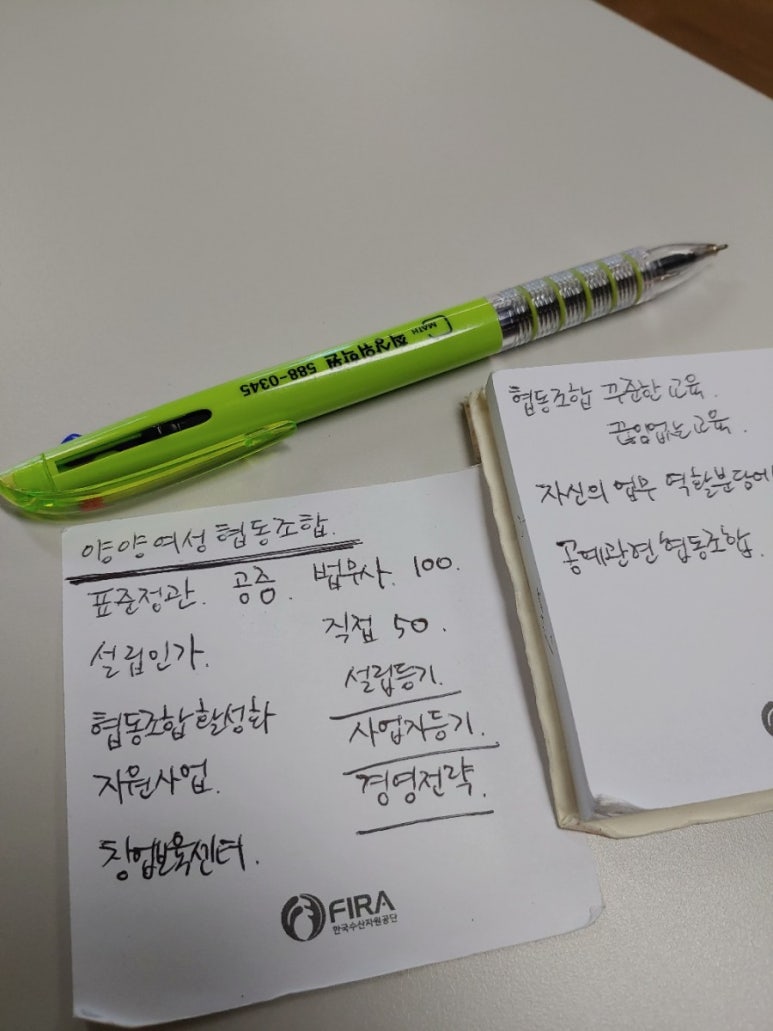 MATH
최상위학원 588-0345
양양여성 협동조합.
표준정관. 공증. 법무사. 100.
직접 50.
설립인가.
설립등기.
협동조합 활성화
사업자등기.
자원사업.
경영전략.
창업보육센터.
FIRA
한국수산자원공단
협동조합 꾸준한 교육.
끊임없는 교육.
자신의 업무 역할분담에
공예관련 협동조합.